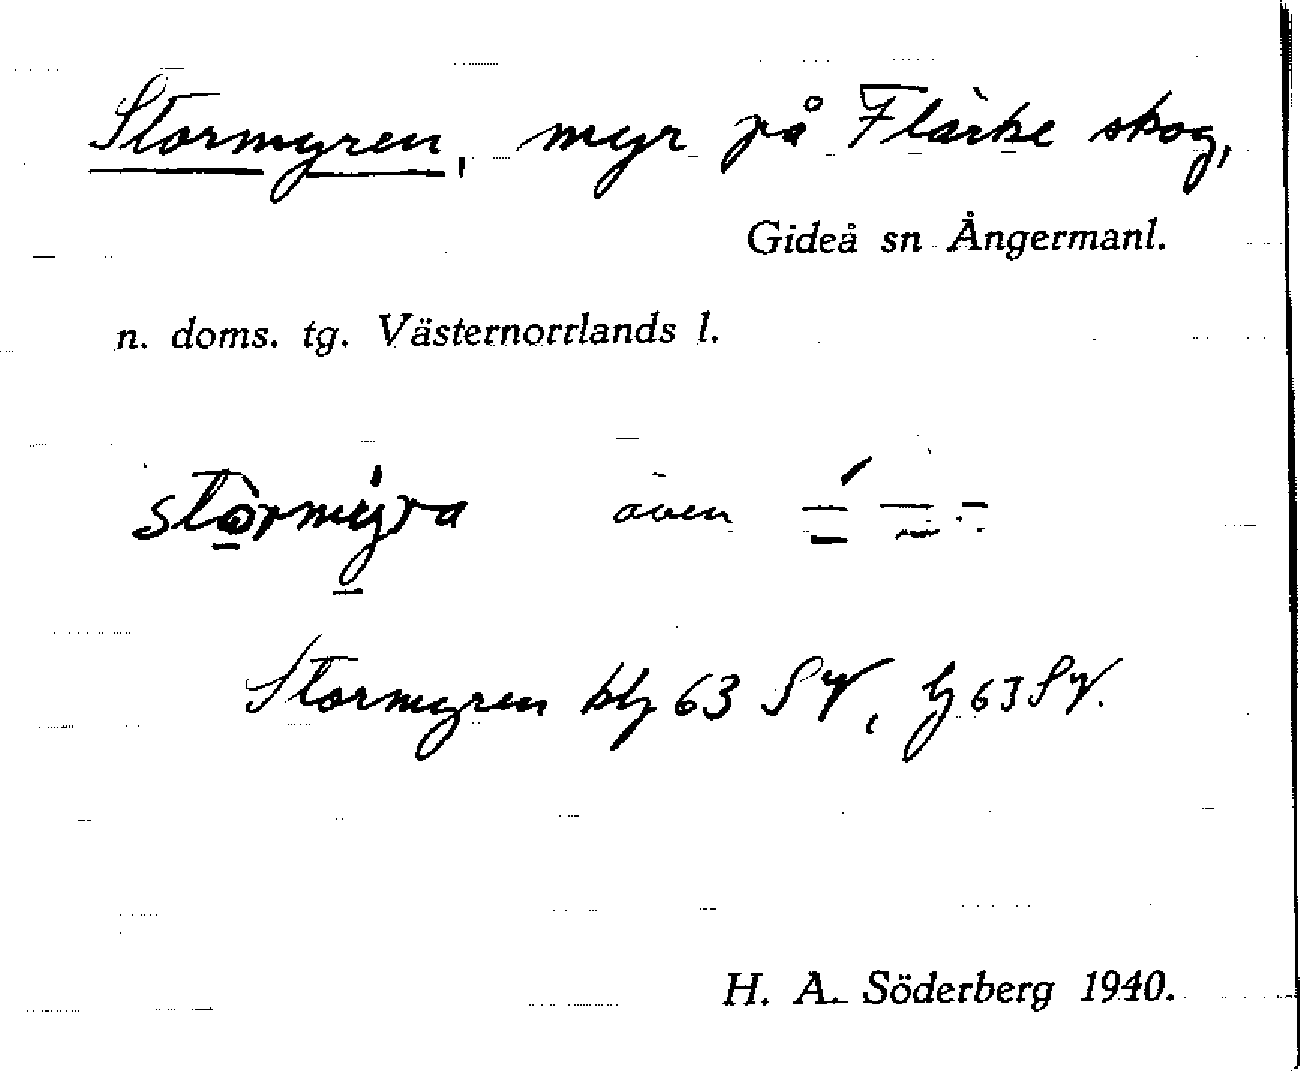 Stormyren, myr på Flärke skog,
Gideå sn Ångermanl.
n. doms. tg. Västernorrlands l.
stòrmýra även
Stormyren blz 63 SV, lz 63 SV.
H. A. Söderberg 1940.